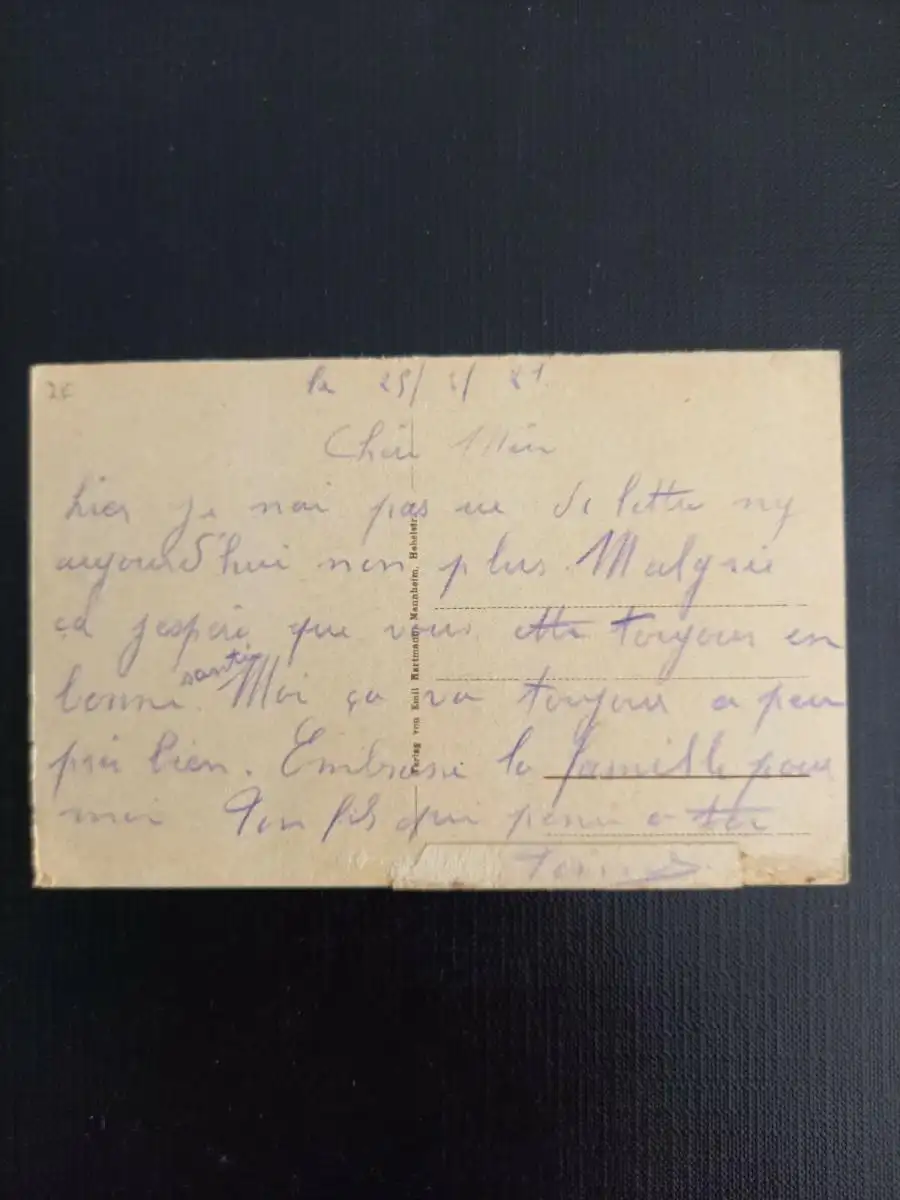 2E
le 25/ 5/ 21
Chère Mère
hier je nai pas ue de lettre ny
aujourd'hui non plus Malgrée
ça j'espère que vous ette toujours en
bonne santé Moi ça va toujours a peu
près bien. Embrasse la famille pour
moi Ton fils qui pense a toi
Verlag von Emil Hartmann, Mannheim, Hebelstr.